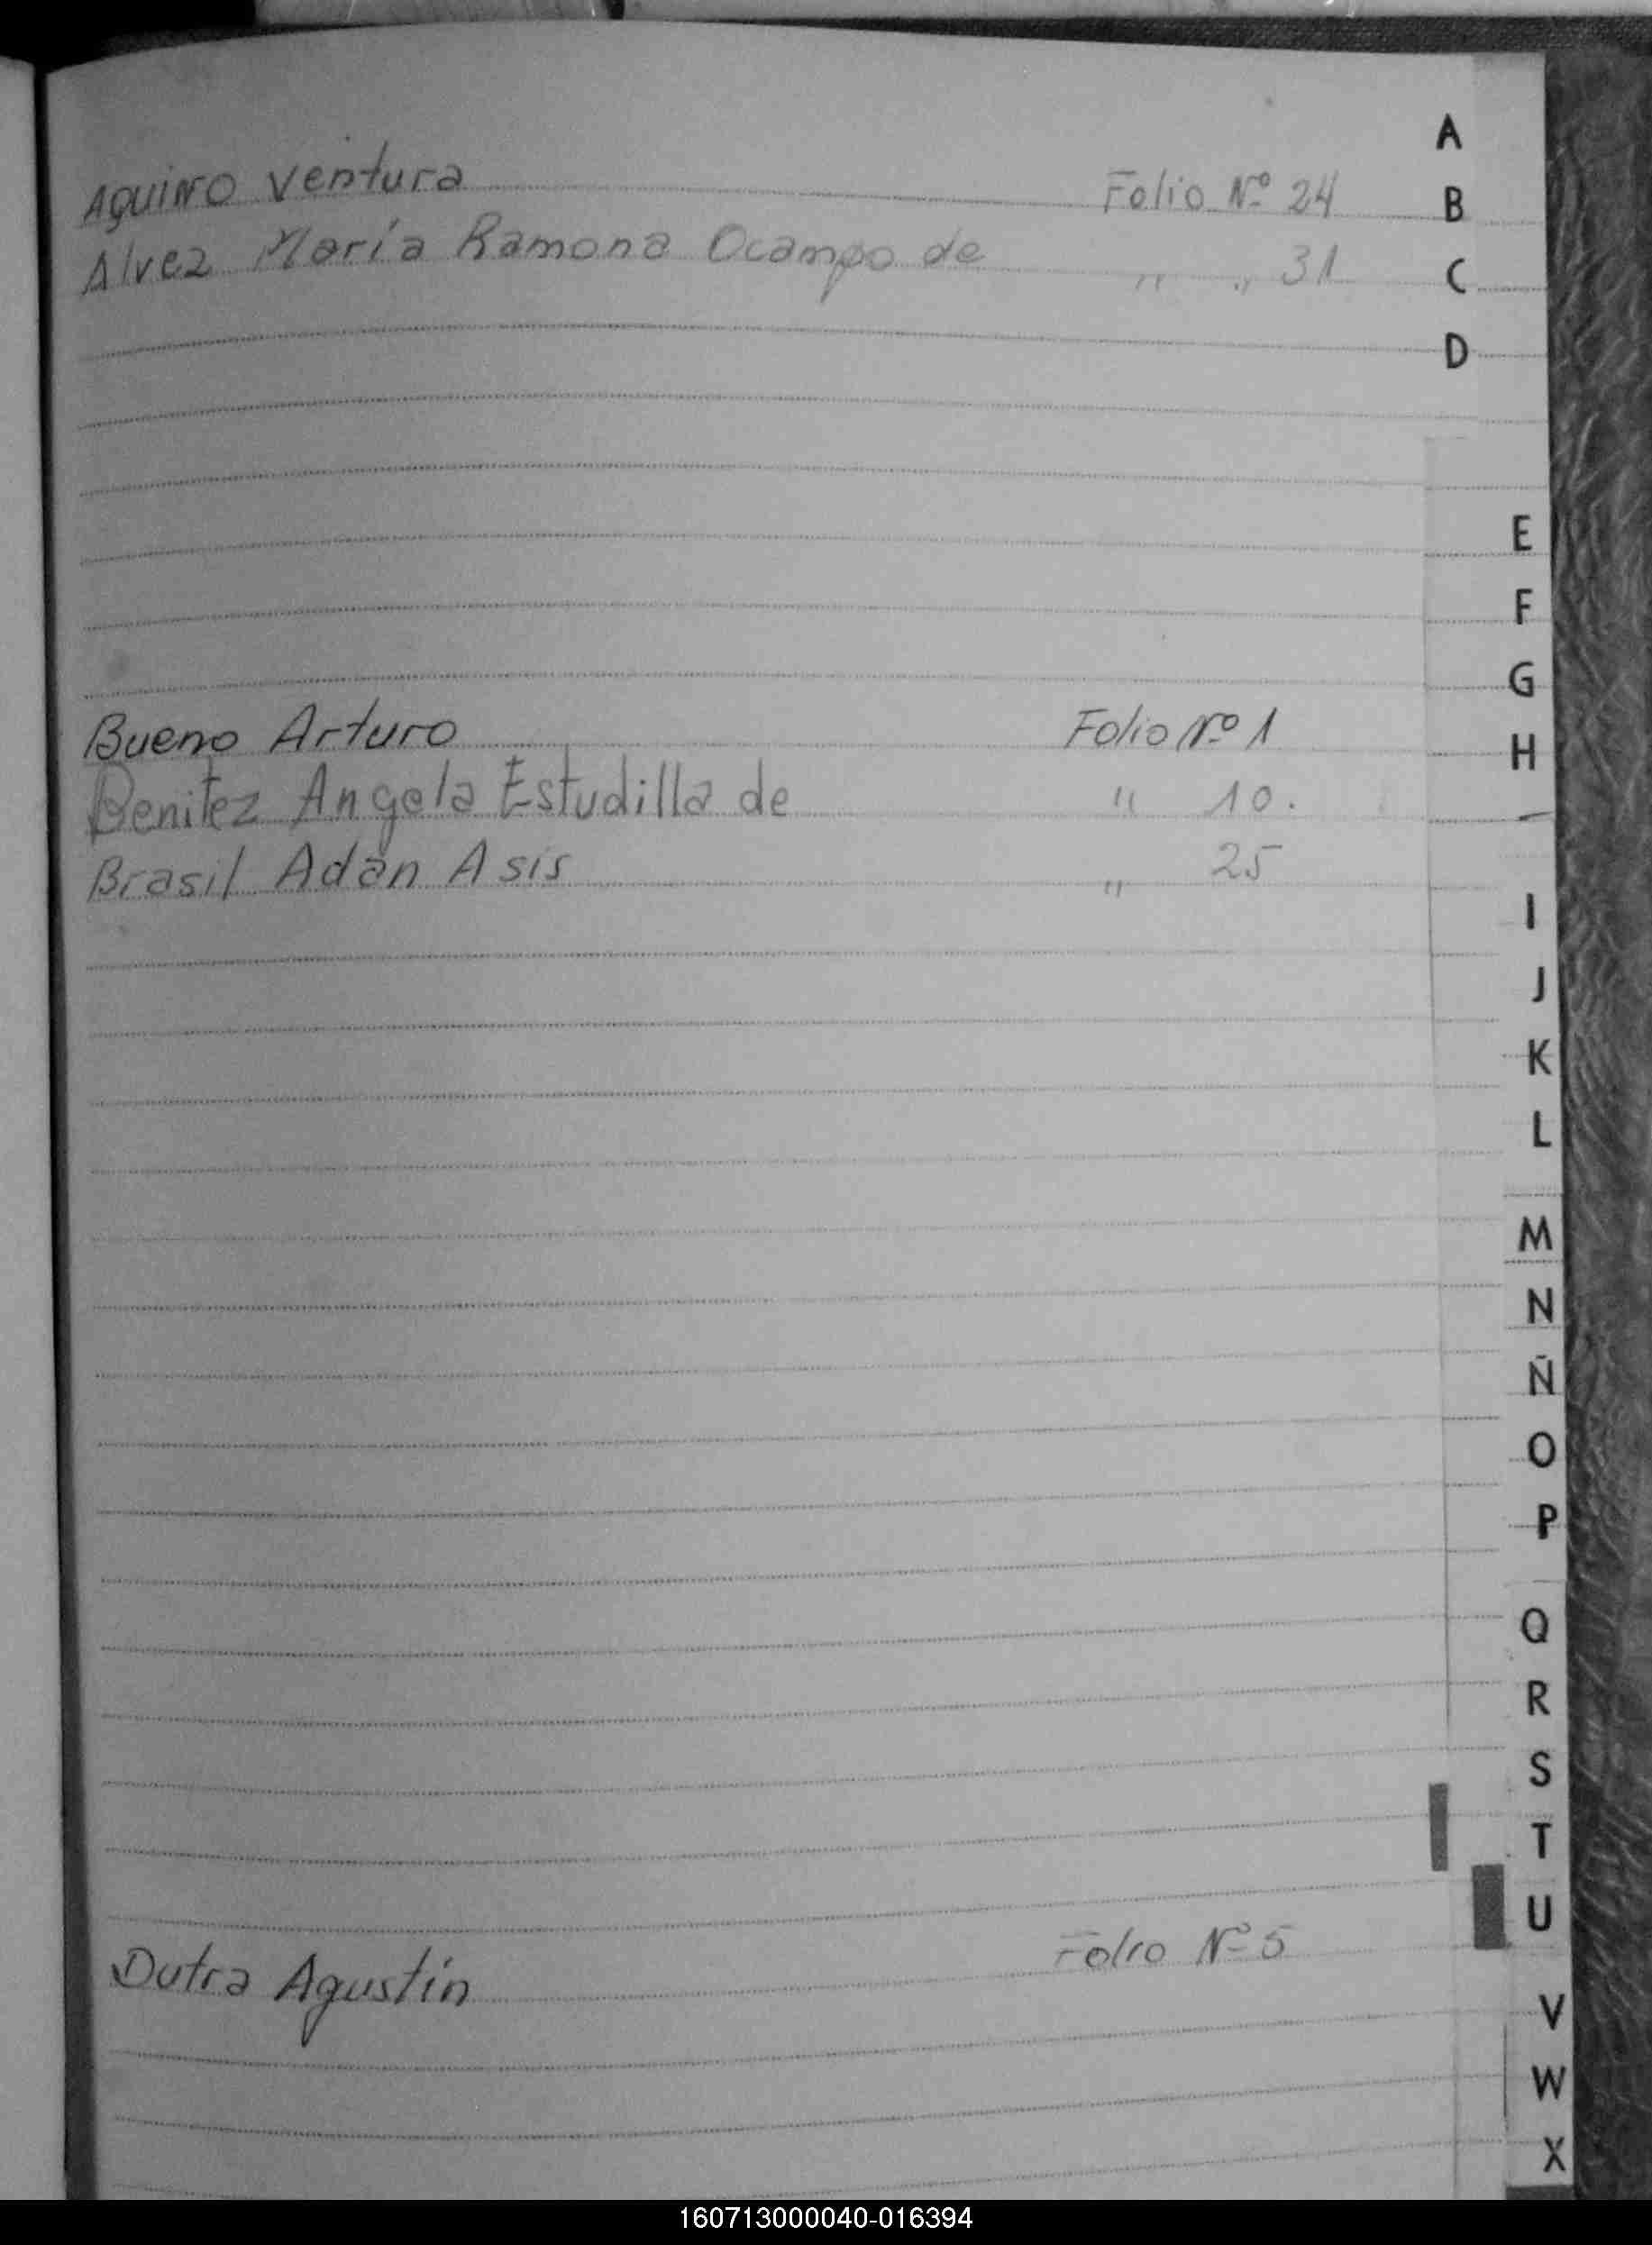 Aquino Ventura Folio Nº 24
Alvez María Ramona Ocampo de " " 31
Bueno Arturo Folio Nº 1
Benitez Angela Estudilla de " 10.
Brasil Adán Asis " 25
Dutra Agustín Folio Nº 5
A
B
C
D
E
F
G
H
I
J
K
L
M
N
Ñ
O
P
Q
R
S
T
U
V
W
X
160713000040-016394